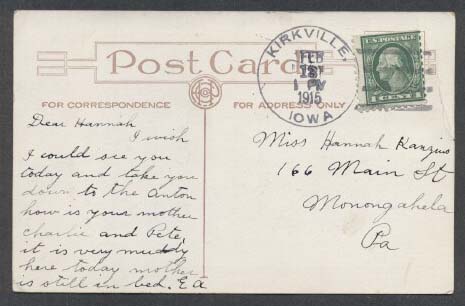 Post Card
FOR CORRESPONDENCE
FOR ADDRESS ONLY
KIRKVILLE,
FEB
1 PM
1915
IOWA
U.S. POSTAGE
1 CENT 1
Dear Hannah
I wish
I could see you
today and take you
down to the Anton
how is your mother
charlie and Pete,
it is very muddy
here today mother
is still in bed. E A
Miss Hannah
166 Main St
Monongahela
Pa